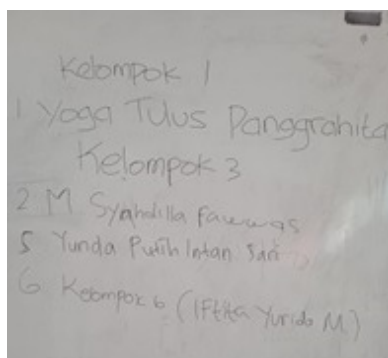 Kelompok 1
1 Yoga Tulus Panggrahita
Kelompok 3
2 M Syahdilla Fawwas
5 Yunda Putih Intan Sari
6 Kelompok 6 (Iftita Yurida M)